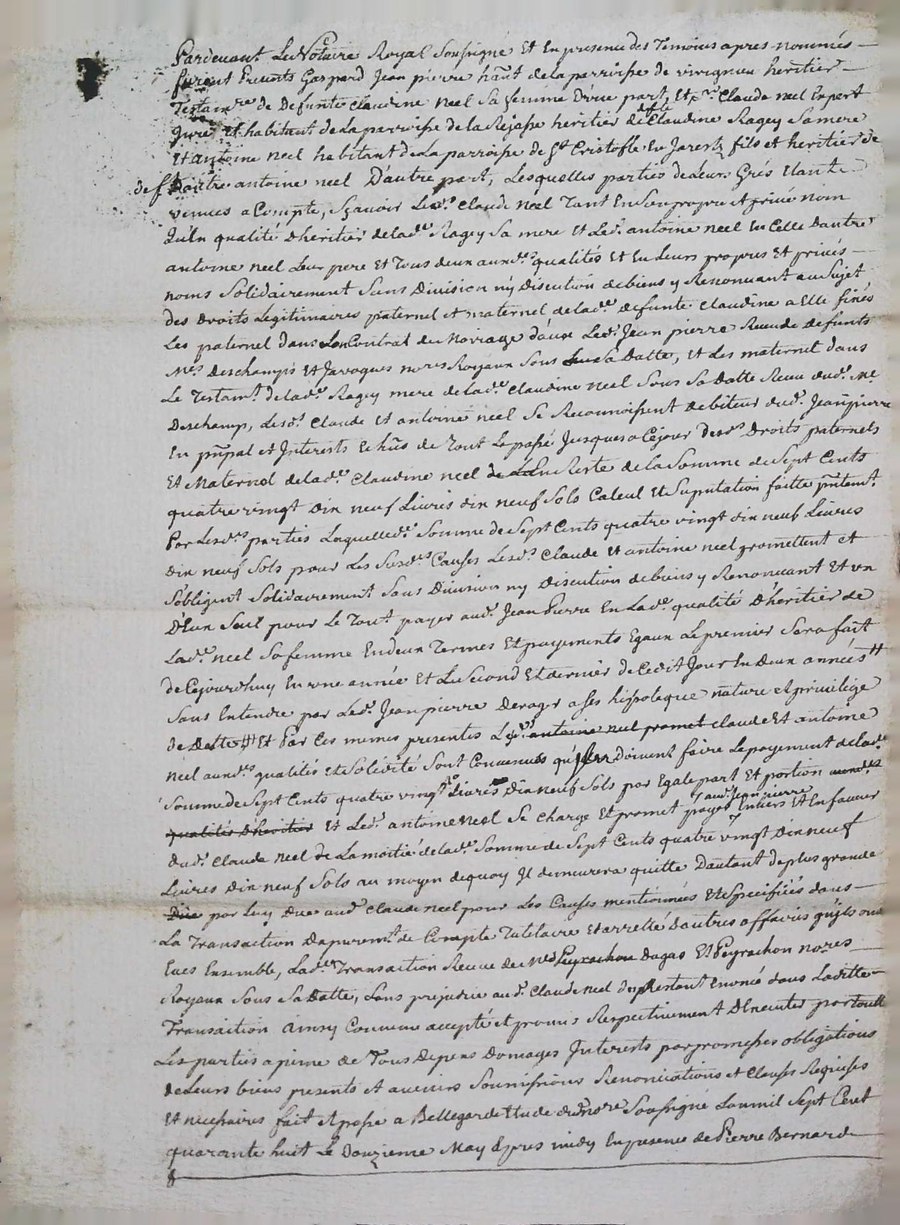 Pardevant Le Notaire Royal Soussigné Et En presence des Temoins apres nommés
furent Presents Gaspard Jean pierre haut de la parroisse de heritier
Testamre de Deffunte Claudine neel Sa femme D'une part, Et Claude neel Expert
Juré Et habitant de La parroisse de la Rejasse heritier de deffte Claudine Ragey Sa mere
Et antoine neel habitant de La parroisse de St Cristofle En Jarest fils et heritier de
deft autre antoine neel D'autre part, Lesquelles parties de Leurs Grés Etant
venues a Compte, Sçavoir Led. Claude neel Tant En Son propre et privé nom
qu'En qualité d'heritier de lade Ragey Sa mere Et Led. antoine neel En Celle Dautre
antoine neel Leur pere Et Tous deux auxds qualités et En Leurs propres Et privés
noms Solidairement Sans Division ny Discution de biens y Renonçant au Sujet
des Droits Legitimaires paternel et maternel de lade defunte Claudine a Elle fixés
Les paternel dans Son Contrat de Mariage d'avec Led. Jean pierre Receu de deffunts
Mes Deschamps Et Javogues nores Royaux Sous Sa Datte, et Les maternel dans
Le Testamt de lade Ragey mere de lade Claudine neel Sous Sa Datte Receu dud. Me
Deschamp, Lesds Claude Et antoine neel Se Reconnoissent debiteur dud. Jean pierre
En pñpal et Interests Echus de Tout Le passé Jusques a Cejour desds Droits paternels
Et Maternel de lade Claudine neel de Reste de la Somme de Sept Cents
quatre vingt dix neuf Livres dix neuf Sols Calcul Et Suputation faitte pñtemt
Par Lesds parties Laquelle de Somme de Sept Cents quatre vingt dix neuf Livres
dix neuf Sols pour Les Susdes Causes Lesds Claude Et antoine neel promettent et
S'obligent Solidairement Sans Division ny Discution de biens y Renonçant Et un
D'Eux Seul pour Le Tout payer aud. Jean Pierre En Lade qualité D'heritier de
Lade neel Sa femme En deux Termes Et payements Egaux Le premier Sera fait
de Cejourdhuy En une année Et Le Second Et dernier de Cedit Jour En Deux années
Sans Entendre par Led. Jean pierre Deroger a Ses hipoteque nature et privilege
de Datte Et Par Ces memes presentes Lesds antoine neel promet Claude Et antoine
neel auxds qualités Et Solidité Sont Convenus Doivent faire Le payement de lade
Somme de Sept Cents quatre vingt Livres Dix neuf Sols par Egale part Et portion auxdes
qualités D'heritier Et Led. antoine neel Se Charge Et promet payer aud. Jean pierre Entiers Et En faveur
dud. Claude neel de La moitié de lade Somme de Sept Cents quatre vingt Dix neuf
Livres dix neuf Sols au moyen de quoy Il demeurera quitte Dautant de plus grande
Düe par Luy Due aud. Claude neel pour Les Causes mentionnées Et Specifiées dans
La Transaction Dapuremt de Compte Tutelaire Et arretté d'autres affaires qu'ils ont
Eues Ensemble, Lade Transaction Receue de Mes Peyrachon Dugas Et Peyrachon nores
Royaux Sous Sa Datte, Sans prejudice aud. Claude neel du Restant Enoncé dans Laditte
Transaction ainsy Convenu accepté et promis Respectivement D'Executer par toutes
Les parties a peine de Tous Depens Domages Interests par promesses obligations
de Leurs biens presents Et avenirs Soumissions Renonciations et Clauses Requises
Et necessaires fait Et passé a Bellegarde Etude du nore Soussigné Lan mil Sept Cent
quarante huit Le Douzieme May apres midy En presence de Pierre Bernard